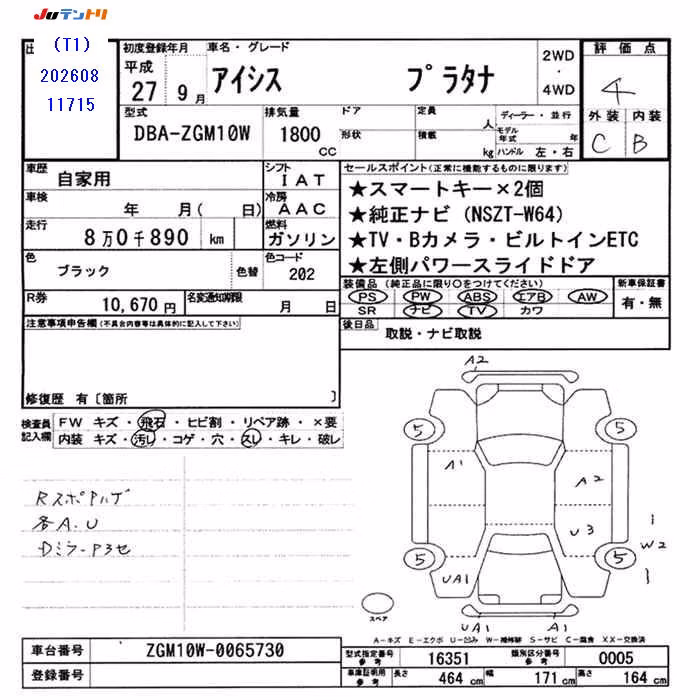 JUテントリ
出
(T1)
202608
11715
初度登録年月
平成
27 9月
車名・グレード
アイシス プラタナ
2WD
・
4WD
評価点
4
外装 内装
C B
型式
DBA-ZGM10W
排気量
1800
CC
ドア
形状
定員
人
積載
kg
ディーラー・並行
モデル年式 年
ハンドル 左・右
車歴
自家用
シフト
IAT
車検
年 月( 日)
冷房
AAC
走行
8万0千890 km
燃料
ガソリン
色
ブラック
色替
色コード
202
R券
10,670円
名変通知期限
月 日
セールスポイント(正常に機能するものに限ります)
★スマートキー×2個
★純正ナビ(NSZT-W64)
★TV・Bカメラ・ビルトインETC
★左側パワースライドドア
装備品(純正品に限り○をつけてください)
PS PW ABS エアB AW
SR ナビ TV カワ
新車保証書
有・無
後日品
取説・ナビ取説
注意事項申告欄(不具合内容等は具体的に記入して下さい)
修復歴 有〔箇所 〕
検査員記入欄
FW キズ・飛石・ヒビ割・リペア跡・×要
内装 キズ・汚し・コゲ・穴・スレ・キレ・破レ
RスポPハゲ
各A.U
Dミラーアミセ
A2
5
5
A1
A2
U3
W2
5
5
UA1
UA1
A1
スペア
A-キズ E-エクボ U-凹み W-補修跡 S-サビ C-腐食 XX-交換済
車台番号
ZGM10W-0065730
登録番号
型式指定番号
参考
16351
類別区分番号
参考
0005
車庫証明用
参考
長さ
464 cm
幅
171 cm
高さ
164 cm